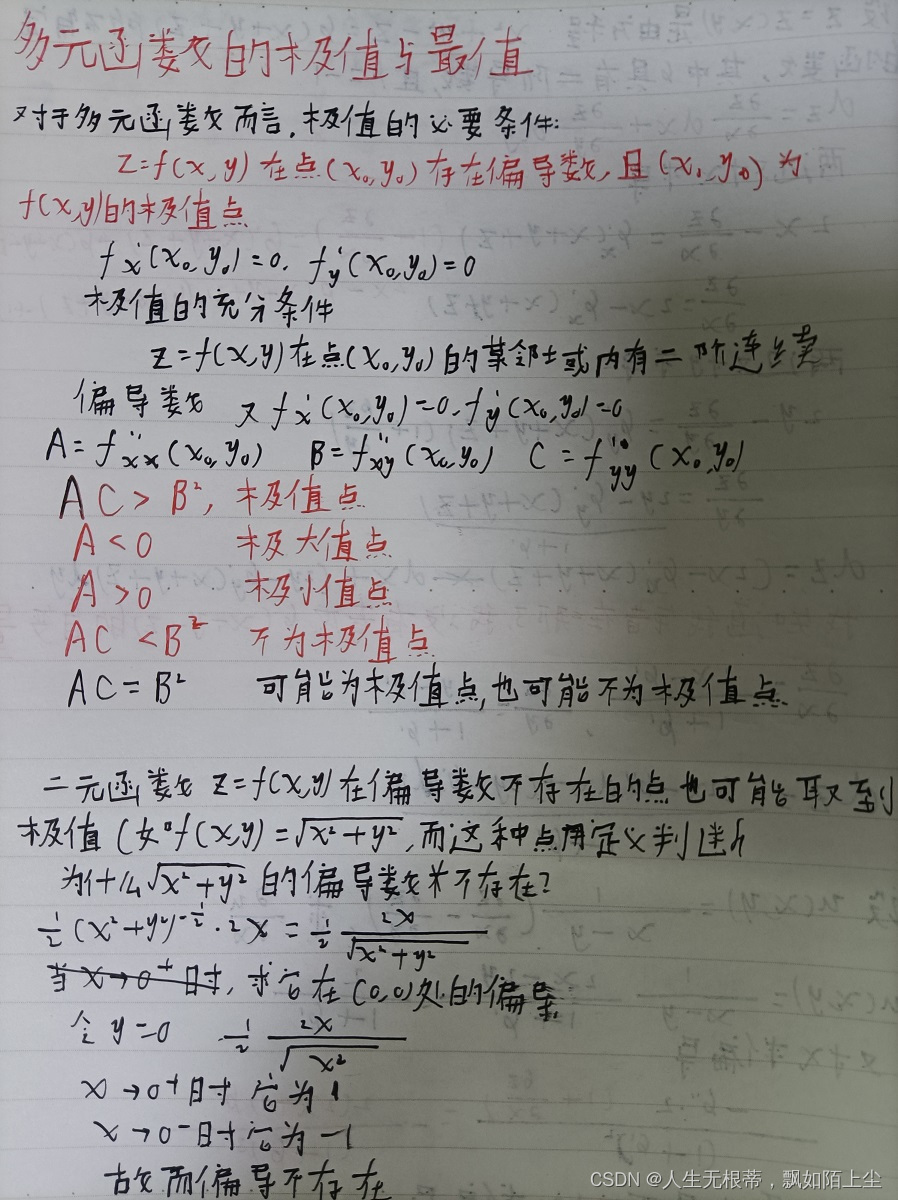 多元函数的极值与最值
对于多元函数而言,极值的必要条件:
Z=f(x,y)在点(x₀,y₀)存在偏导数,且(x₀,y₀)为
f(x,y)的极值点
fₓ'(x₀,y₀)=0, f_y'(x₀,y₀)=0
极值的充分条件
Z=f(x,y)在点(x₀,y₀)的某邻域内有二阶连续
偏导数 又fₓ'(x₀,y₀)=0,f_y'(x₀,y₀)=0
A=f''ₓₓ(x₀,y₀) B=f''_xy(x₀,y₀) C=f''_yy(x₀,y₀)
AC>B², 极值点
A<0 极大值点
A>0 极小值点
AC<B² 不为极值点
AC=B² 可能为极值点,也可能不为极值点
二元函数 Z=f(x,y)在偏导数不存在的点也可能取到
极值(如f(x,y)=√(x²+y²),而这种点用定义判断
为什么√(x²+y²)的偏导数不存在?
½(x²+y²)^(-½)·2x=½ 2x/√(x²+y²)
求它在(0,0)处的偏导
令y=0 ½ 2x/√(x²)
x→0+时 它为1
x→0-时它为-1
故而偏导不存在
CSDN @人生无根蒂,飘如陌上尘